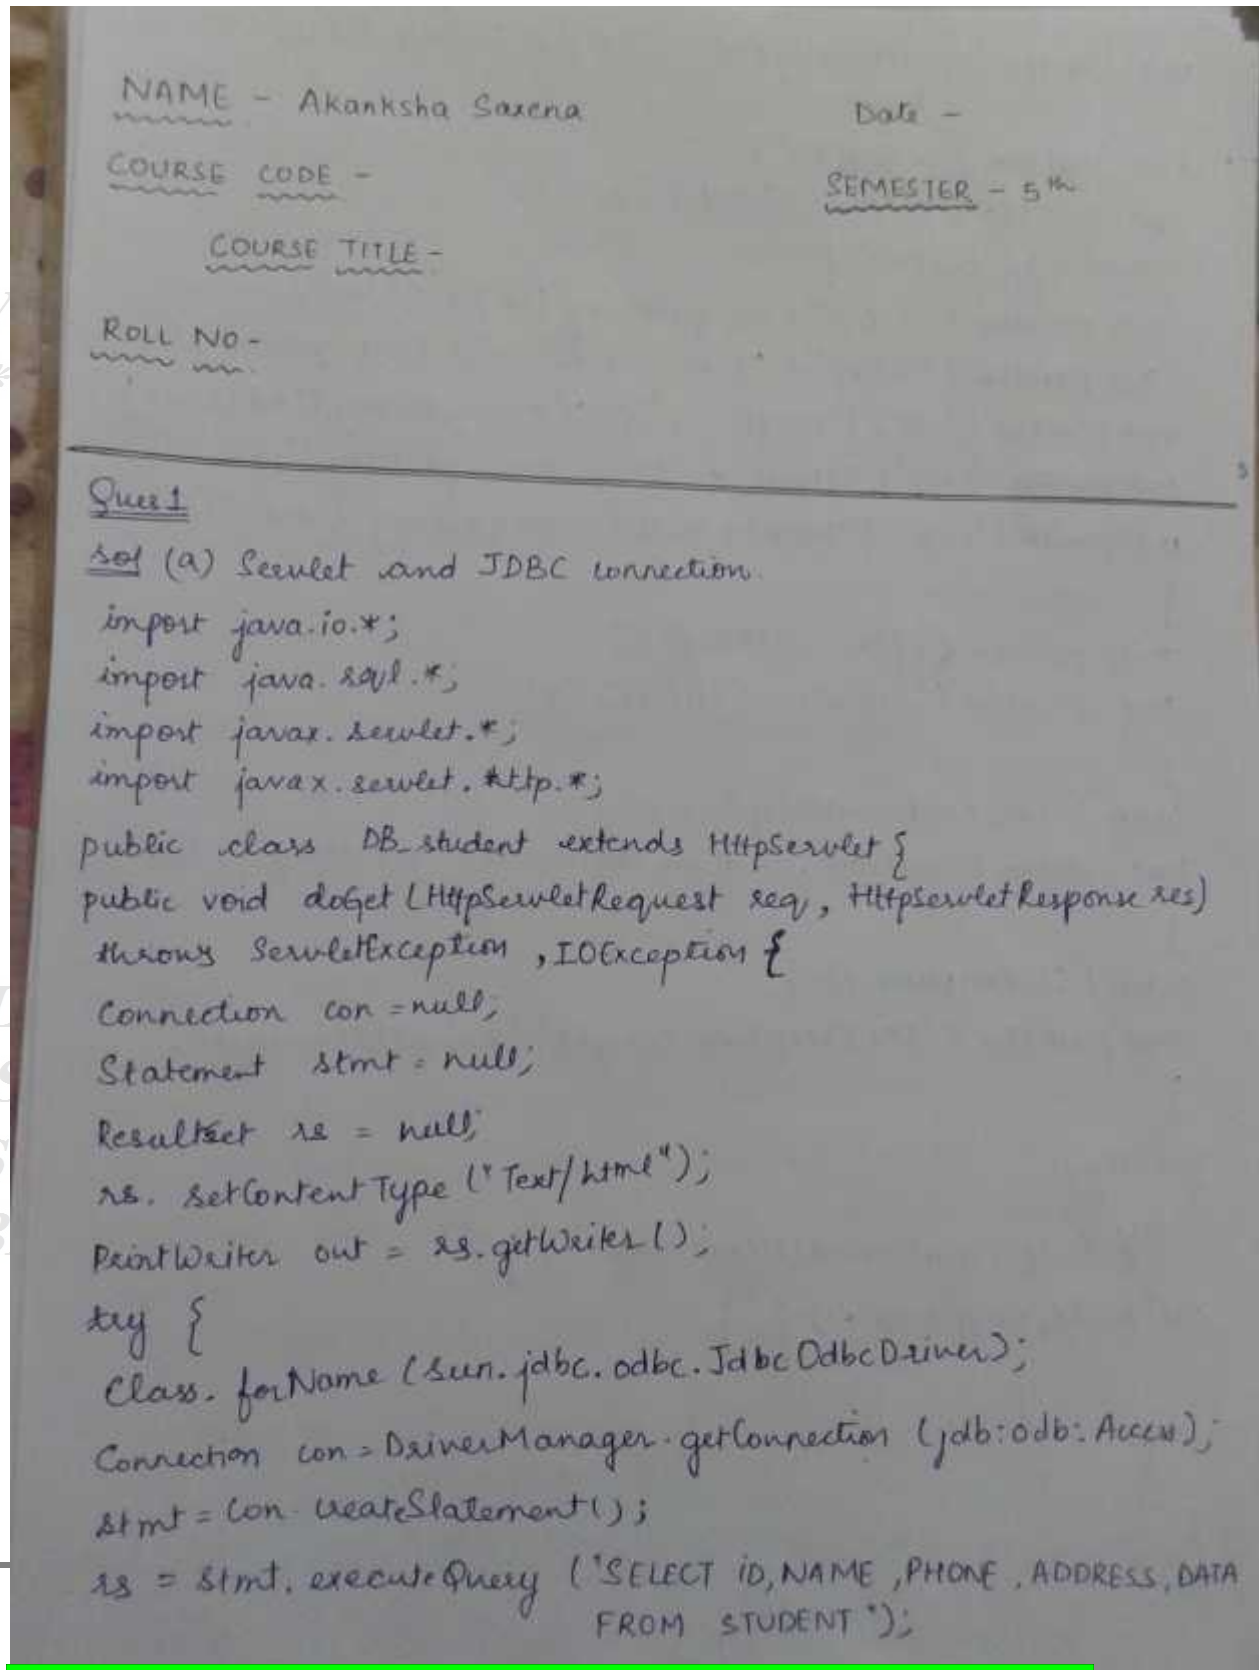 NAME - Akanksha Saxena
Date -
COURSE CODE -
SEMESTER - 5th
COURSE TITLE -
ROLL NO -
Ques 1
sol (a) Servlet and JDBC connection.
import java.io.*;
import java.sql.*;
import javax.servlet.*;
import javax.servlet.http.*;
public class DB_student extends HttpServlet {
public void doGet (HttpServletRequest req, HttpServletResponse res)
throws ServletException, IOException {
Connection con = null;
Statement stmt = null;
ResultSet rs = null;
rs. setContentType ("Text/html");
PrintWriter out = rs.getWriter();
try {
Class. forName (sun.jdbc.odbc.JdbcOdbcDriver);
Connection con = DriverManager.getConnection (jdb:odb:Access);
stmt = con.createStatement();
rs = stmt. executeQuery ("SELECT ID, NAME, PHONE, ADDRESS, DATA
FROM STUDENT");